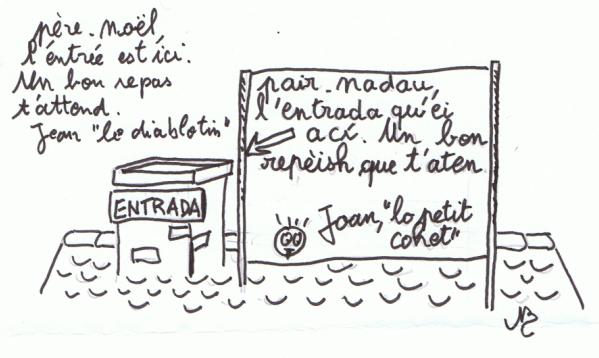 père-noël
l'éntrée est ici.
Un bon repas
t'attend.
Jean "le diablotin"
pair-nadau,
l'entrada qu'ei
ací. Un bon
repèish que t'aten
Joan, "lo petit
cohet"
ENTRADA